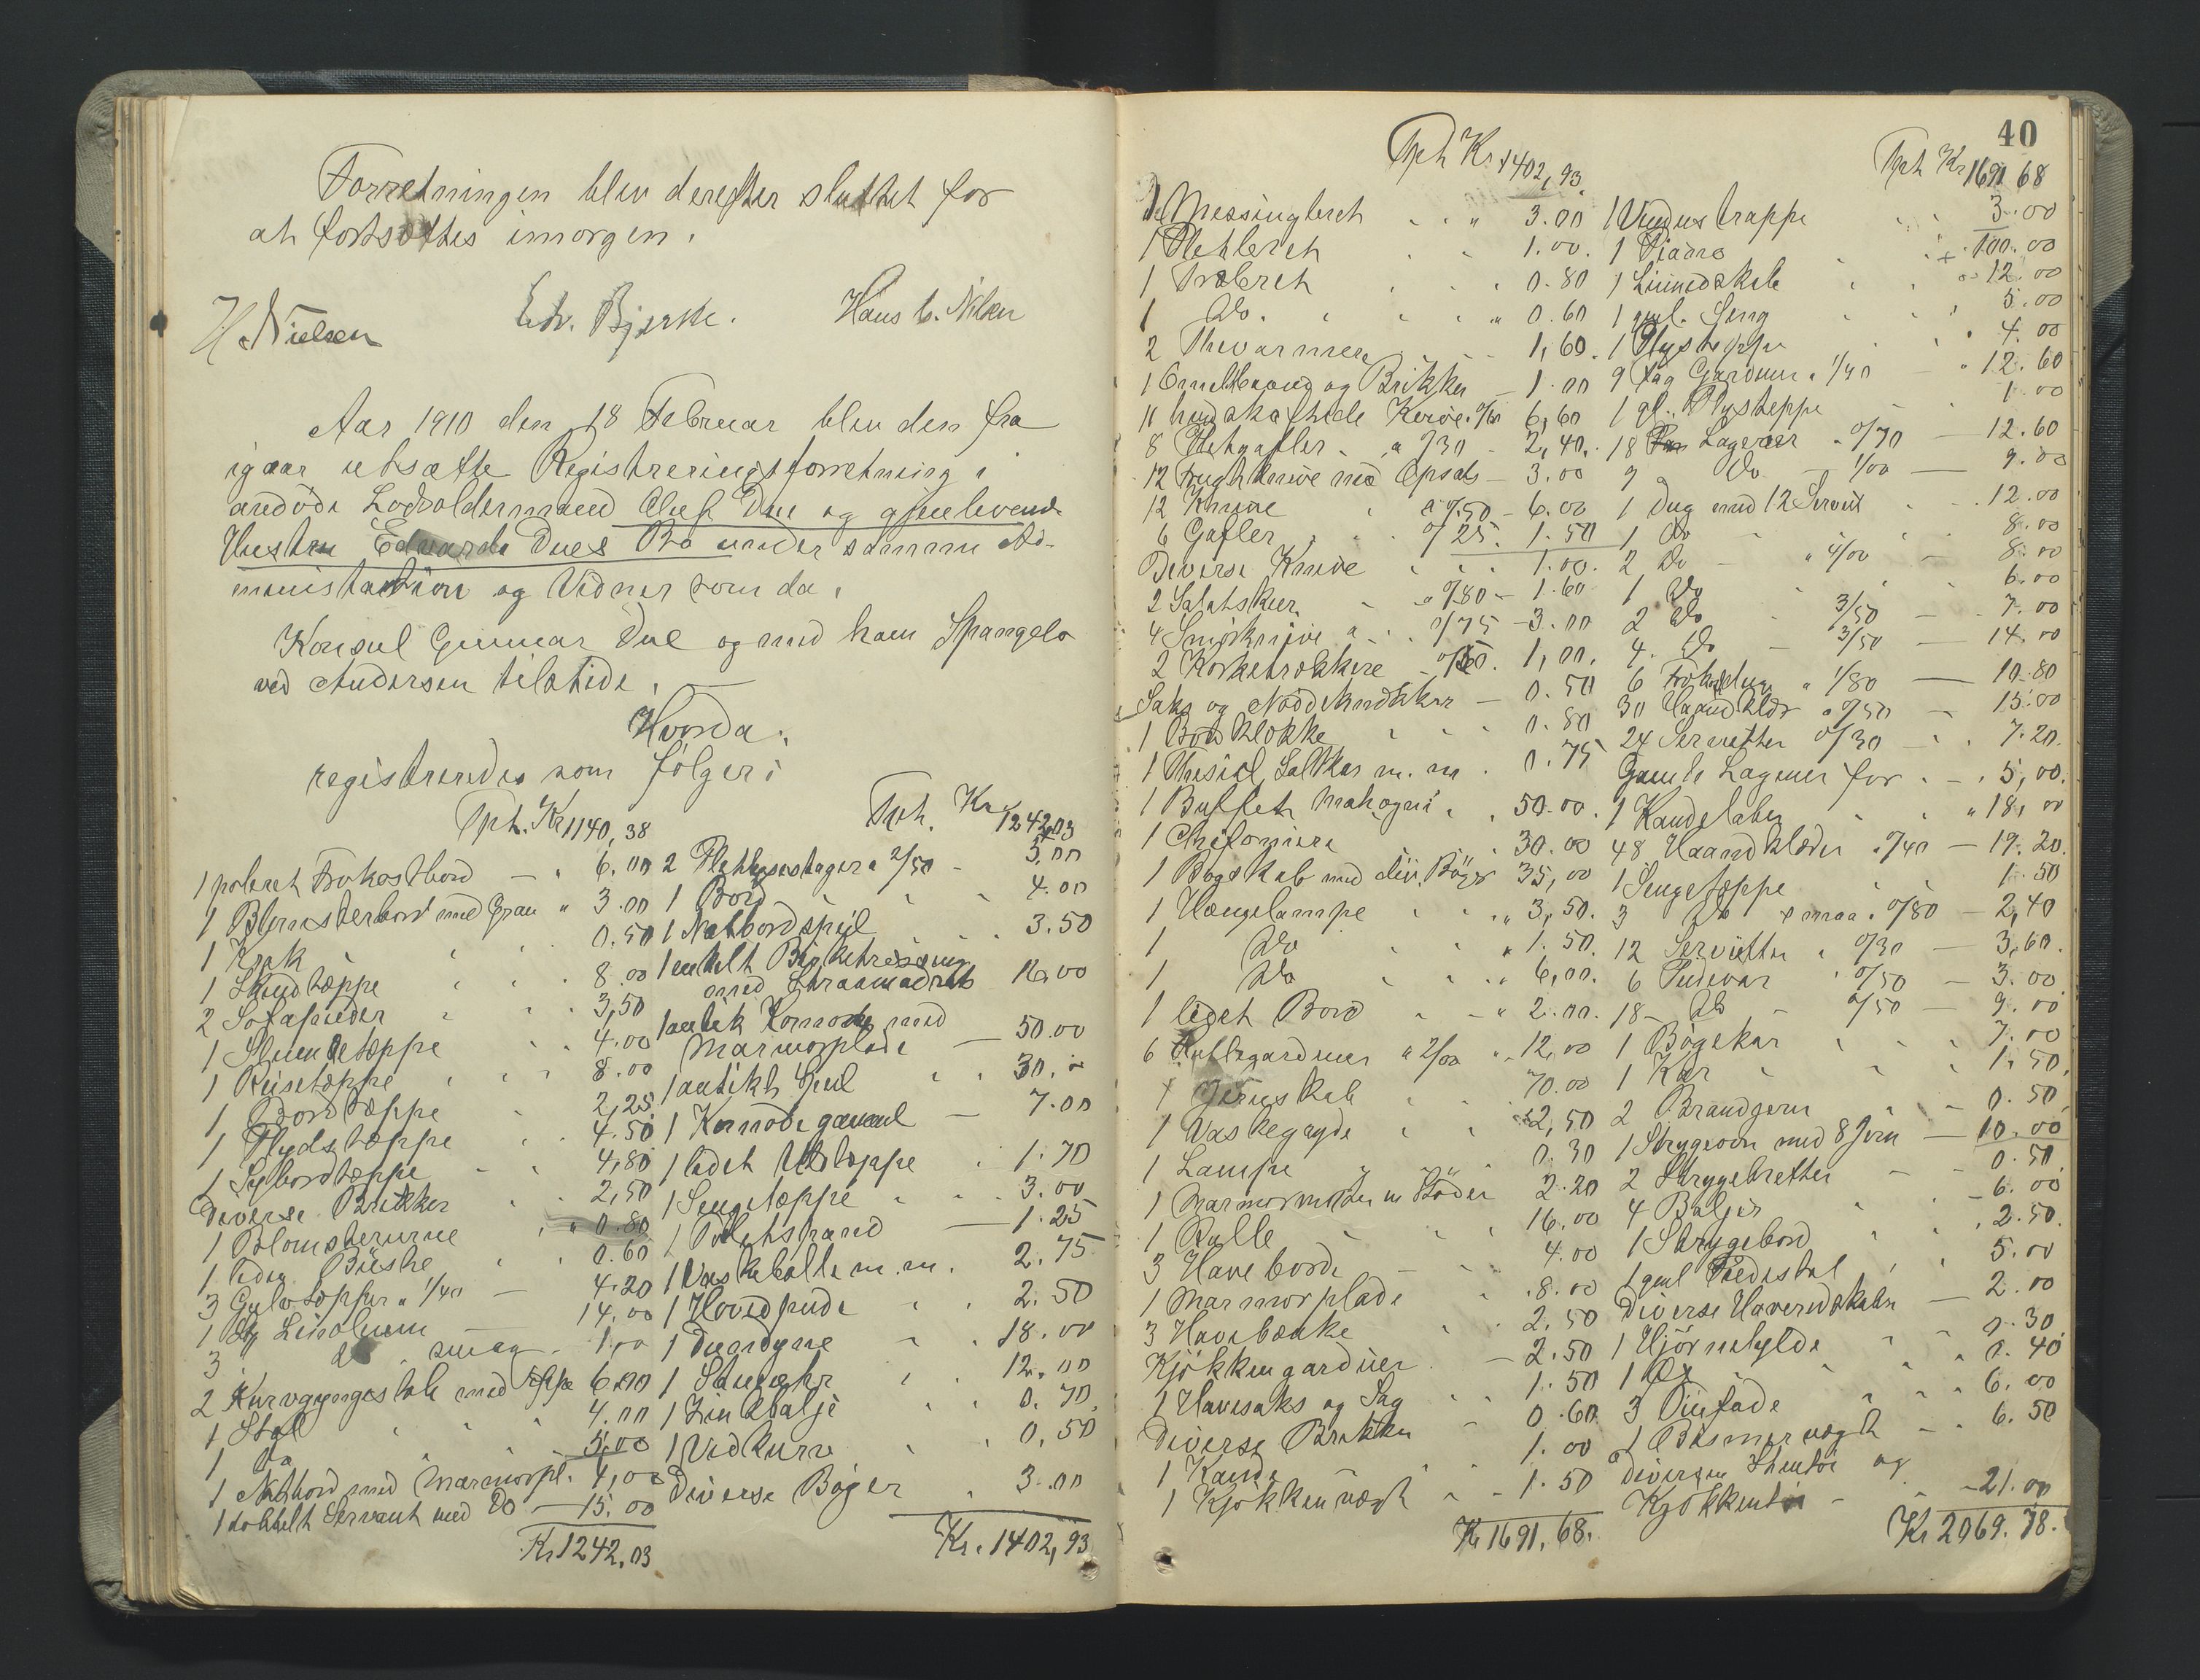 Forretningen blev derefter sluttet for
at fortsættes imorgen.
H. Nielsen Edv. Bjerke. Hans C. Nilsen
Aar 1910 den 18 Februar blev den fra
igaar udsatte Registreringsforretning i
afdøde Lodsoldermand Due og gjenlevende
Hustru Edvarda Dues Bo under samme Ad-
ministration og Vidner som da.
Konsul Gunnar Due og med ham Spangelo
ved Andersen tilstede.
Hvorda,
registreredes som følger:
Tpt. Kr 1140,38
1 poleret Frokostbord 6.00
1 Blomsterbord med Gran 3.00
1 Krak 0.50
1 Skindtæppe 8.00
2 Sofapuder 3,50
1 Slumretæppe 4.00
1 Reisetæppe 8.00
1 Bordtæppe 2,25
1 Plydstæppe 4.50
1 Sybordtæppe 4,80
Diverse Brikker 2,50
1 Blomsterurne 0.80
1 liden Büste 0.60
3 Gulvtæpper a 1/40 4.20
1 Linoleum 14.00
3 do smaa 1,00
2 Kurvgyngestole med Tæppe 6.00
1 Stol 4.00
1 Do 5,00
1 Natbord med Marmorpl. 4,00
1 dobbelt Servant med Do 15.00
Kr 1242,03
Tpt. Kr 1242,03
2 Pletlysestager a 2/50 5.00
1 Bord 4.00
1 Natbordspeil 3.50
1 enkelt Birketræseng
med Straamadrats 16,00
1 antik Komode med
Marmorplade 50.00
1 antikt Speil 30.00
1 Komode gammel 7.00
1 lidet Uldtæppe 1.70
1 Sengetæppe 3.00
1 Toiletspand 1.25
1 Vaskebolle m.m. 2.75
1 Hovedpude 2.50
1 Dundyne 18.00
1 Staaughr 12.00
1 Zinkbalje 0.70
1 Vedkurv 0,50
Diverse Bøger 3.00
Kr. 1402,93
40
Tpt Kr. 1402,93
1 Messingbret 3.00
1 Pletbret 1.00
1 Træbret 0.80
1 Do. 0.60
2 Thevarmere 1,60
1 Omeletpande og Brikker 1.00
11 hvidskaftede Knive a 0/60 6,60
8 Pletgafler a 0/30 2,40
12 Frugtknive med Opsats 3.00
12 Knive a 0/50 6.00
6 Gafler 0/25 1.50
Diverse Knive 1.00
2 Salatskeer a 0/80 1.60
4 Smørknive a 0/75 3.00
2 Korketrækkere 0/50 1,00
Saks og Nøddeknækker 0.50
1 Bordklokke 0.80
1 Thesiel, Saltkar m.m. 0.75
1 Buffet Mahogni 50.00
1 Chefoniere 30.00
1 Bogskab med div. Bøger 35,00
1 Hængelampe 3,50
1 Do 1.50
1 Do 6,00
1 lidet Bord 2.00
6 Rullegardiner a 2/00 12,00
1 Jernskab 70.00
1 Vaskegryde 2,50
1 Lampe 0.30
1 Marmormorter m Støder 2.20
1 Rulle 16.00
3 Haveborde 4.00
1 Marmorplade 8.00
3 Havebænke 2.50
Kjøkkengardiner 2.50
1 Havesaks og Sag 1.50
Diverse Brikker 0.60
1 Kande 1.00
1 Kjøkkenvægt 1.50
Kr 1691,68.
Tpt Kr 1691 68
1 Vindustrappe 3.00
1 Piano 100.00
1 Linnedskab 12.00
1 gml. Seng 5.00
1 Plystæppe 4.00
9 Fag Gardiner a 1/40 12.60
1 gl. Plysteppe 1.00
18 Lagener a 0/70 12.60
9 Do 1/00 9.00
1 Dug med 12 Serviet 12.00
1 Do 8.00
2 Do a 4/00 8.00
1 Do 6.00
2 Do 3/50 7.00
4 Do 3/50 14.00
6 Frokostduge a 1/80 10.80
30 Haandklær a 0/50 15.00
24 Servietter 0/30 7.20
Gamle Lagener for 5,00
1 Kandelaber 18,00
48 Haandklæder a 0/40 19.20
1 Sengetæppe 1.50
3 Do smaa a 0/80 2,40
12 Servietter a 0/30 3,60
6 Pudevar 0/50 3.00
18 Do 0/50 9.00
1 Bøgekar 7.00
1 Kar 1.50
2 Brandjern 0.50
1 Strygeovn med 8 Jern 10.00
2 Strygebretter 0.50
4 Baljer 6.00
1 Strygebord 2.50
1 gml Piedestal 5.00
Diverse Haveredskaber 2.00
1 Hjørnehylde 0.30
1 Øx 0.40
3 Vinfade 6.00
1 Bismervægt 6.50
Diverse Stentøi og
Kjøkkentøi 21.00
Kr 2069.78.